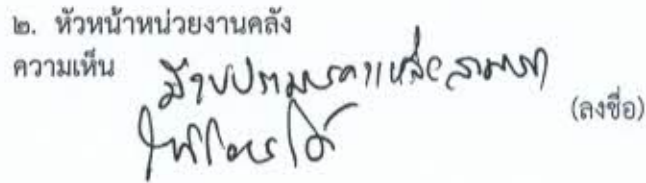 ๒. หัวหน้าหน่วยงานคลัง
ความเห็น มีงบประมาณคงเหลือสามารถ
ให้โอนได้
(ลงชื่อ)